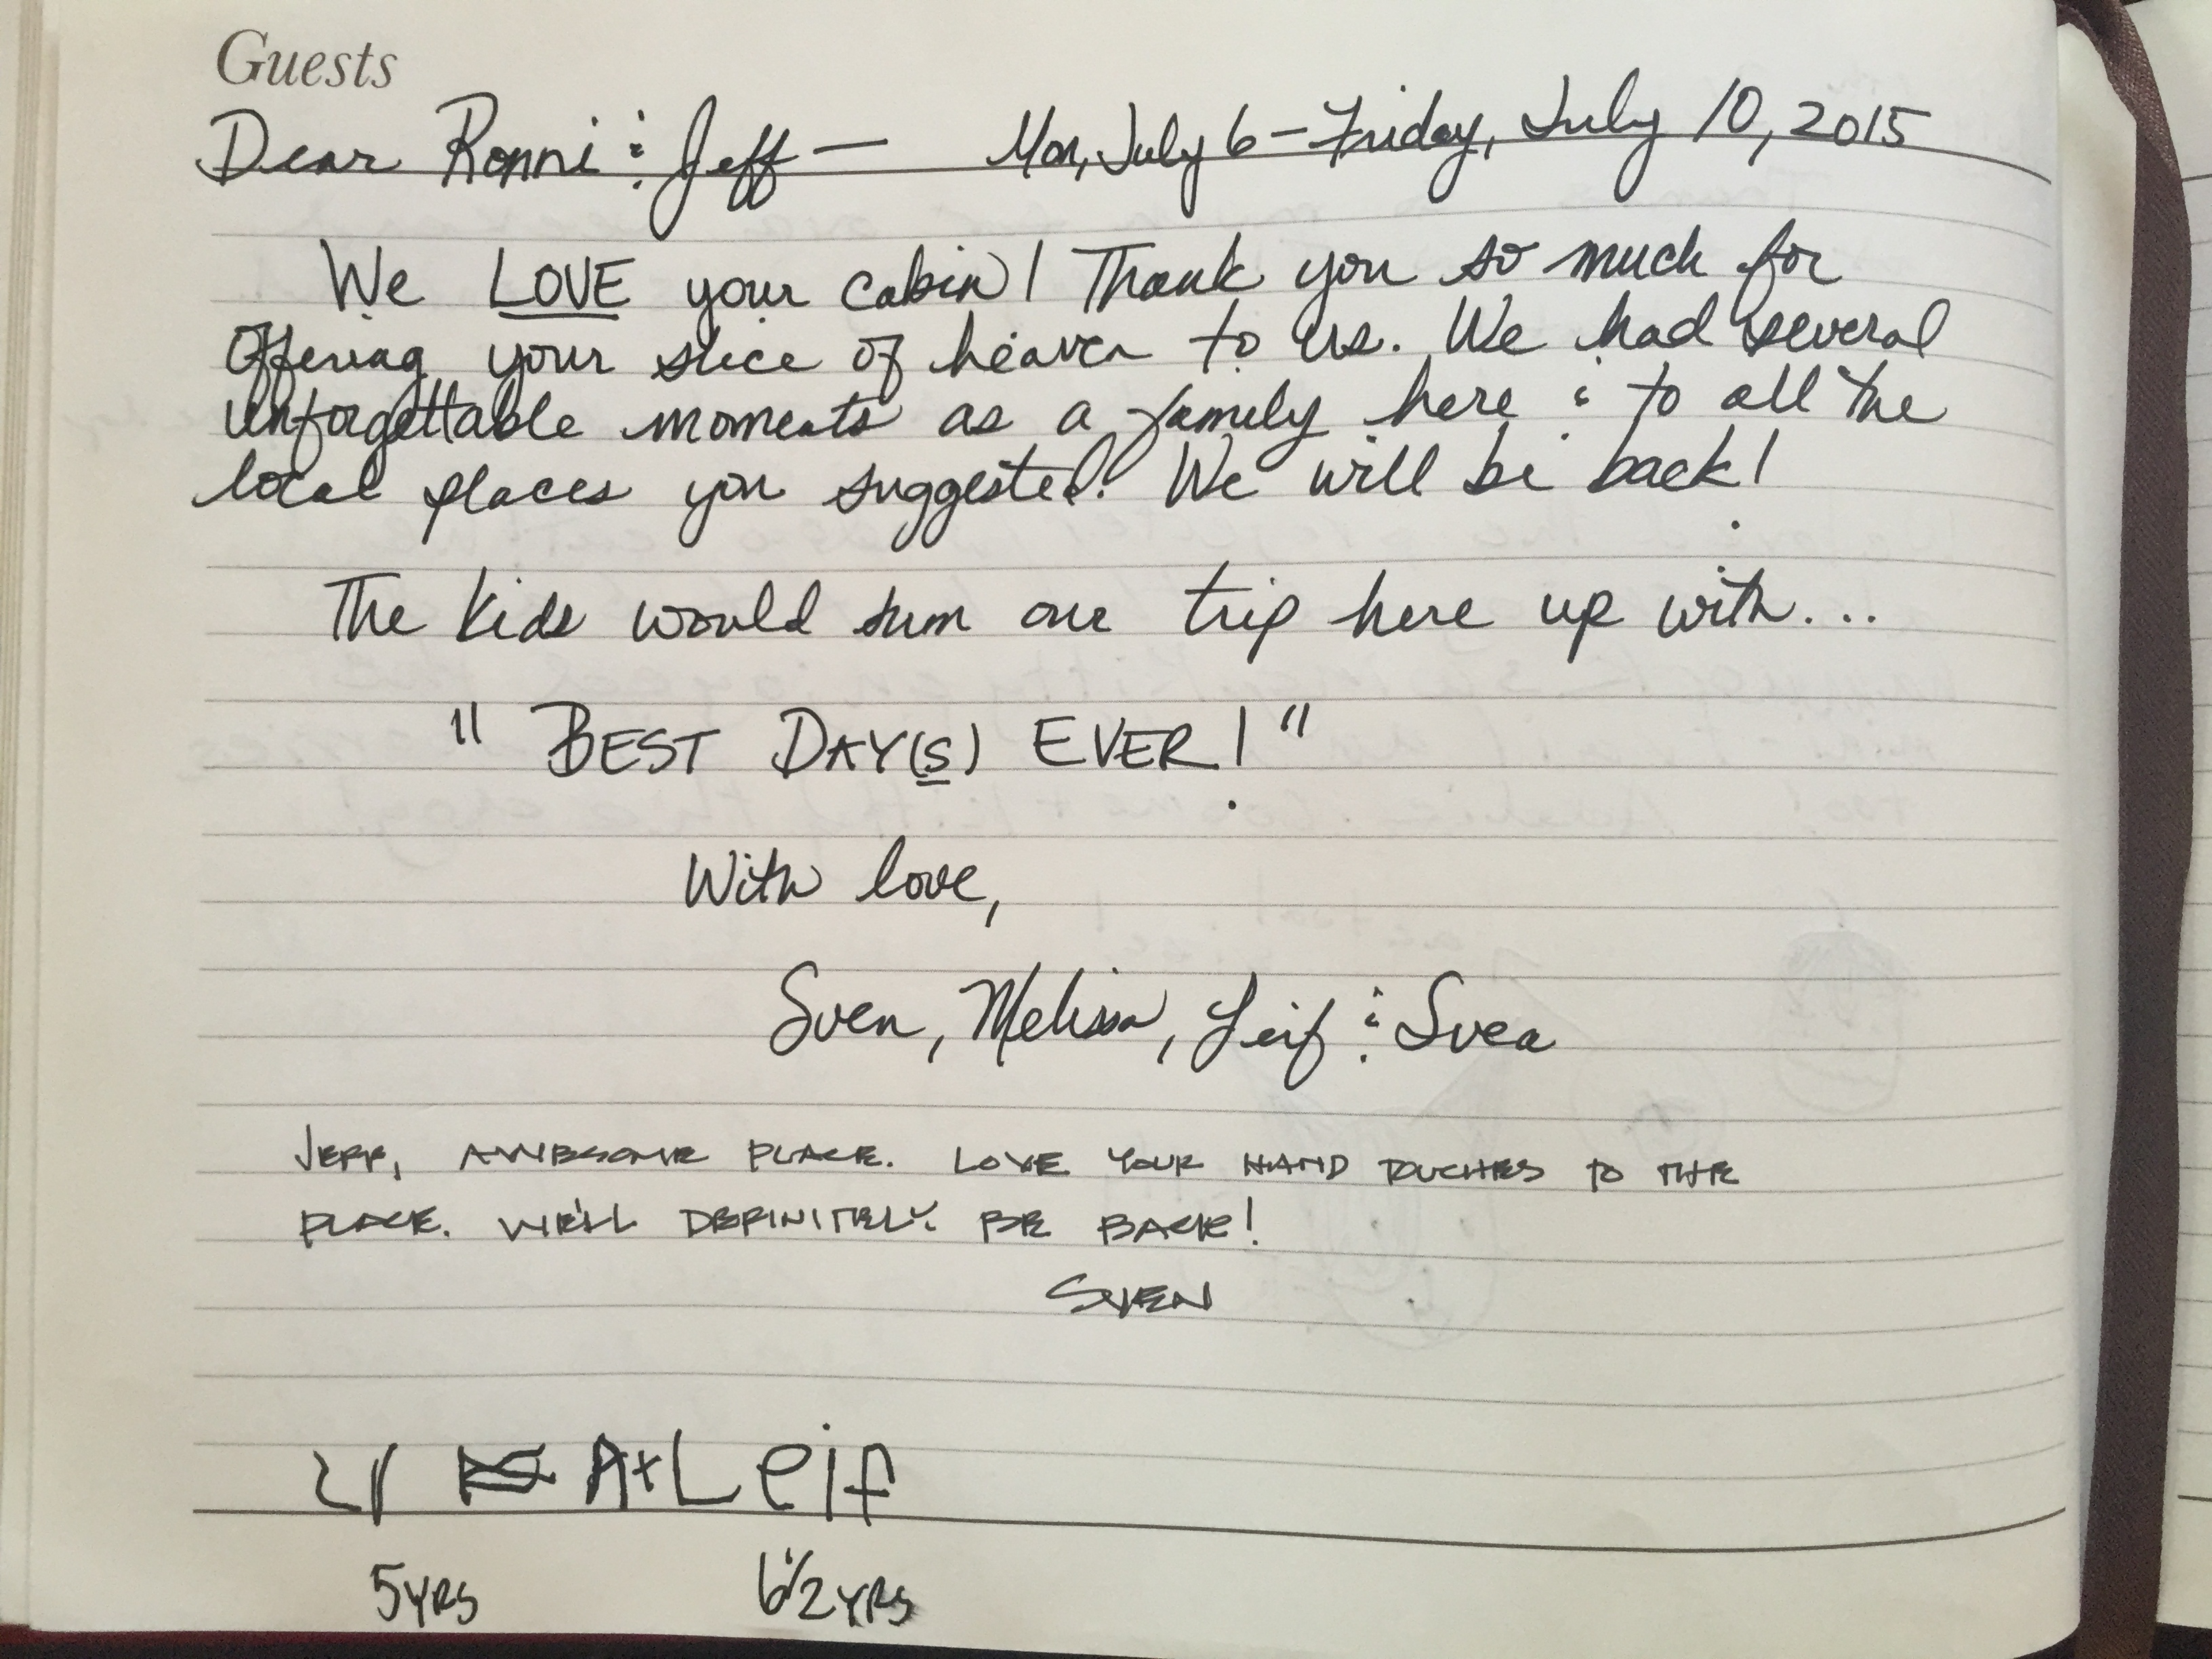 Guests
Dear Ronni & Jeff — Mon, July 6 – Friday, July 10, 2015
We LOVE your cabin! Thank you so much for
offering your slice of heaven to us. We had several
unforgettable moments as a family here & to all the
local places you suggested! We will be back!
The kids would sum our trip here up with...
"BEST DAY(S) EVER!"
With love,
Sven, Melissa, Leif & Svea
JEFF, AWESOME PLACE. LOVE YOUR HAND TOUCHES TO THE
PLACE. WE'LL DEFINITELY BE BACK!
SVEN
A+Leif
5YRS 6 1/2 YRS